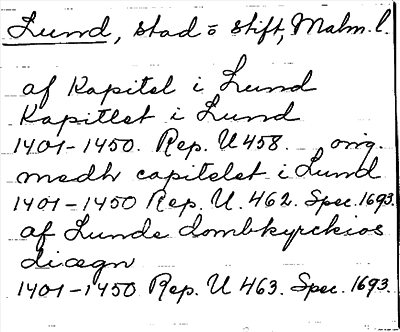 Lund, stad o stift, Malm. l.
af Kapitel i Lund
Kapitlet i Lund
1401-1450. Rep. U 458. orig.
medh capitelet i Lund
1401-1450 Rep. U. 462. Spec. 1693.
af Lunde dombkyrckios
diægn
1401-1450 Rep. U 463. Spec. 1693.